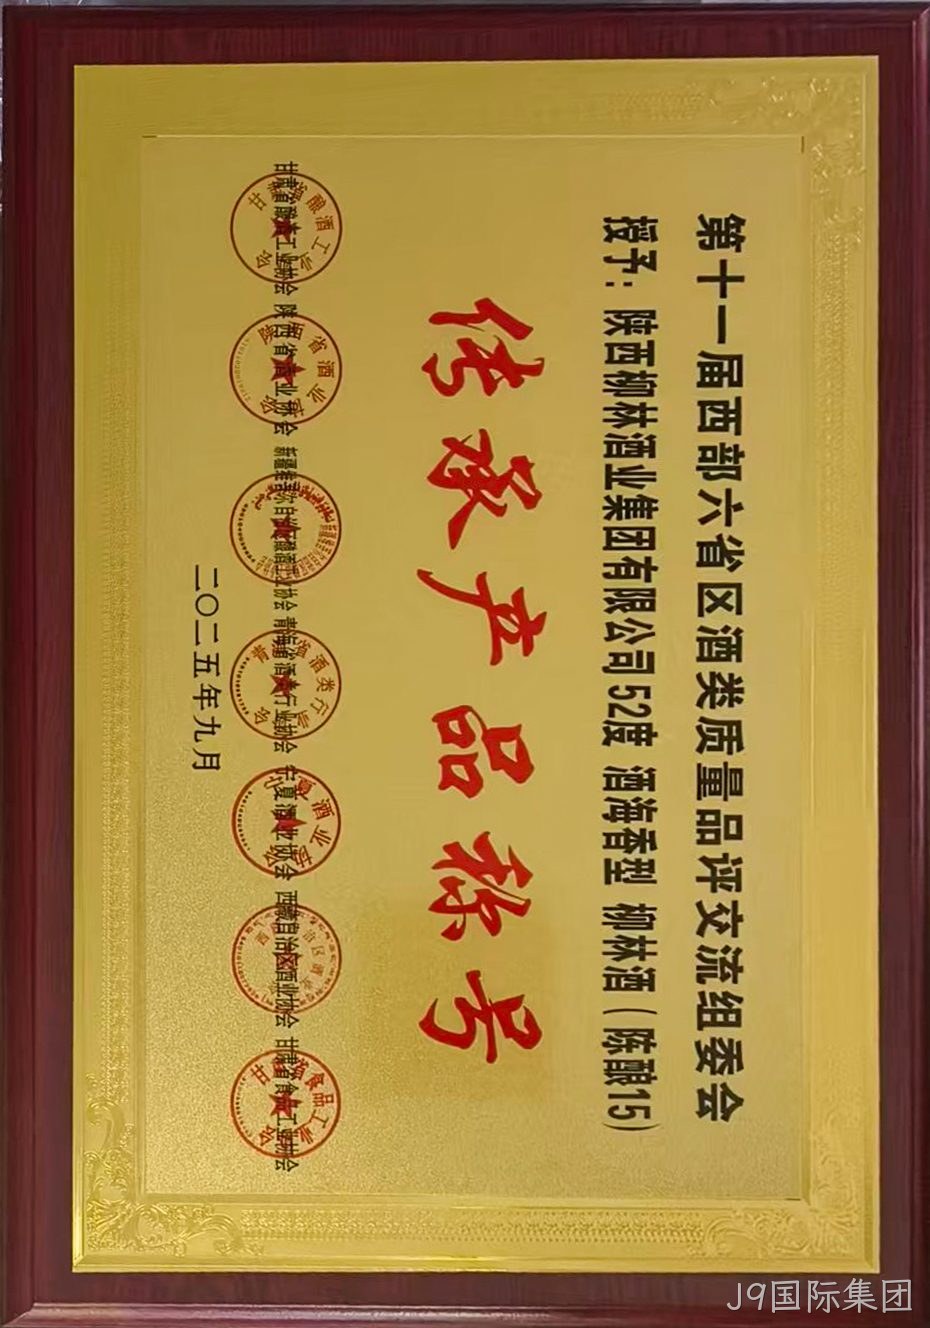 第十一届西部六省区酒类质量品评交流组委会
授予：陕西柳林酒业集团有限公司52度 酒海香型 柳林酒（陈酿15）
传承产品称号
甘肃省酿酒工业协会 陕西省酒业协会 新疆维吾尔自治区酿酒工业协会 青海省酒类行业协会 宁夏酒业协会 西藏自治区酒业协会 甘肃省食品工业协会
二〇二五年九月
J9国际集团